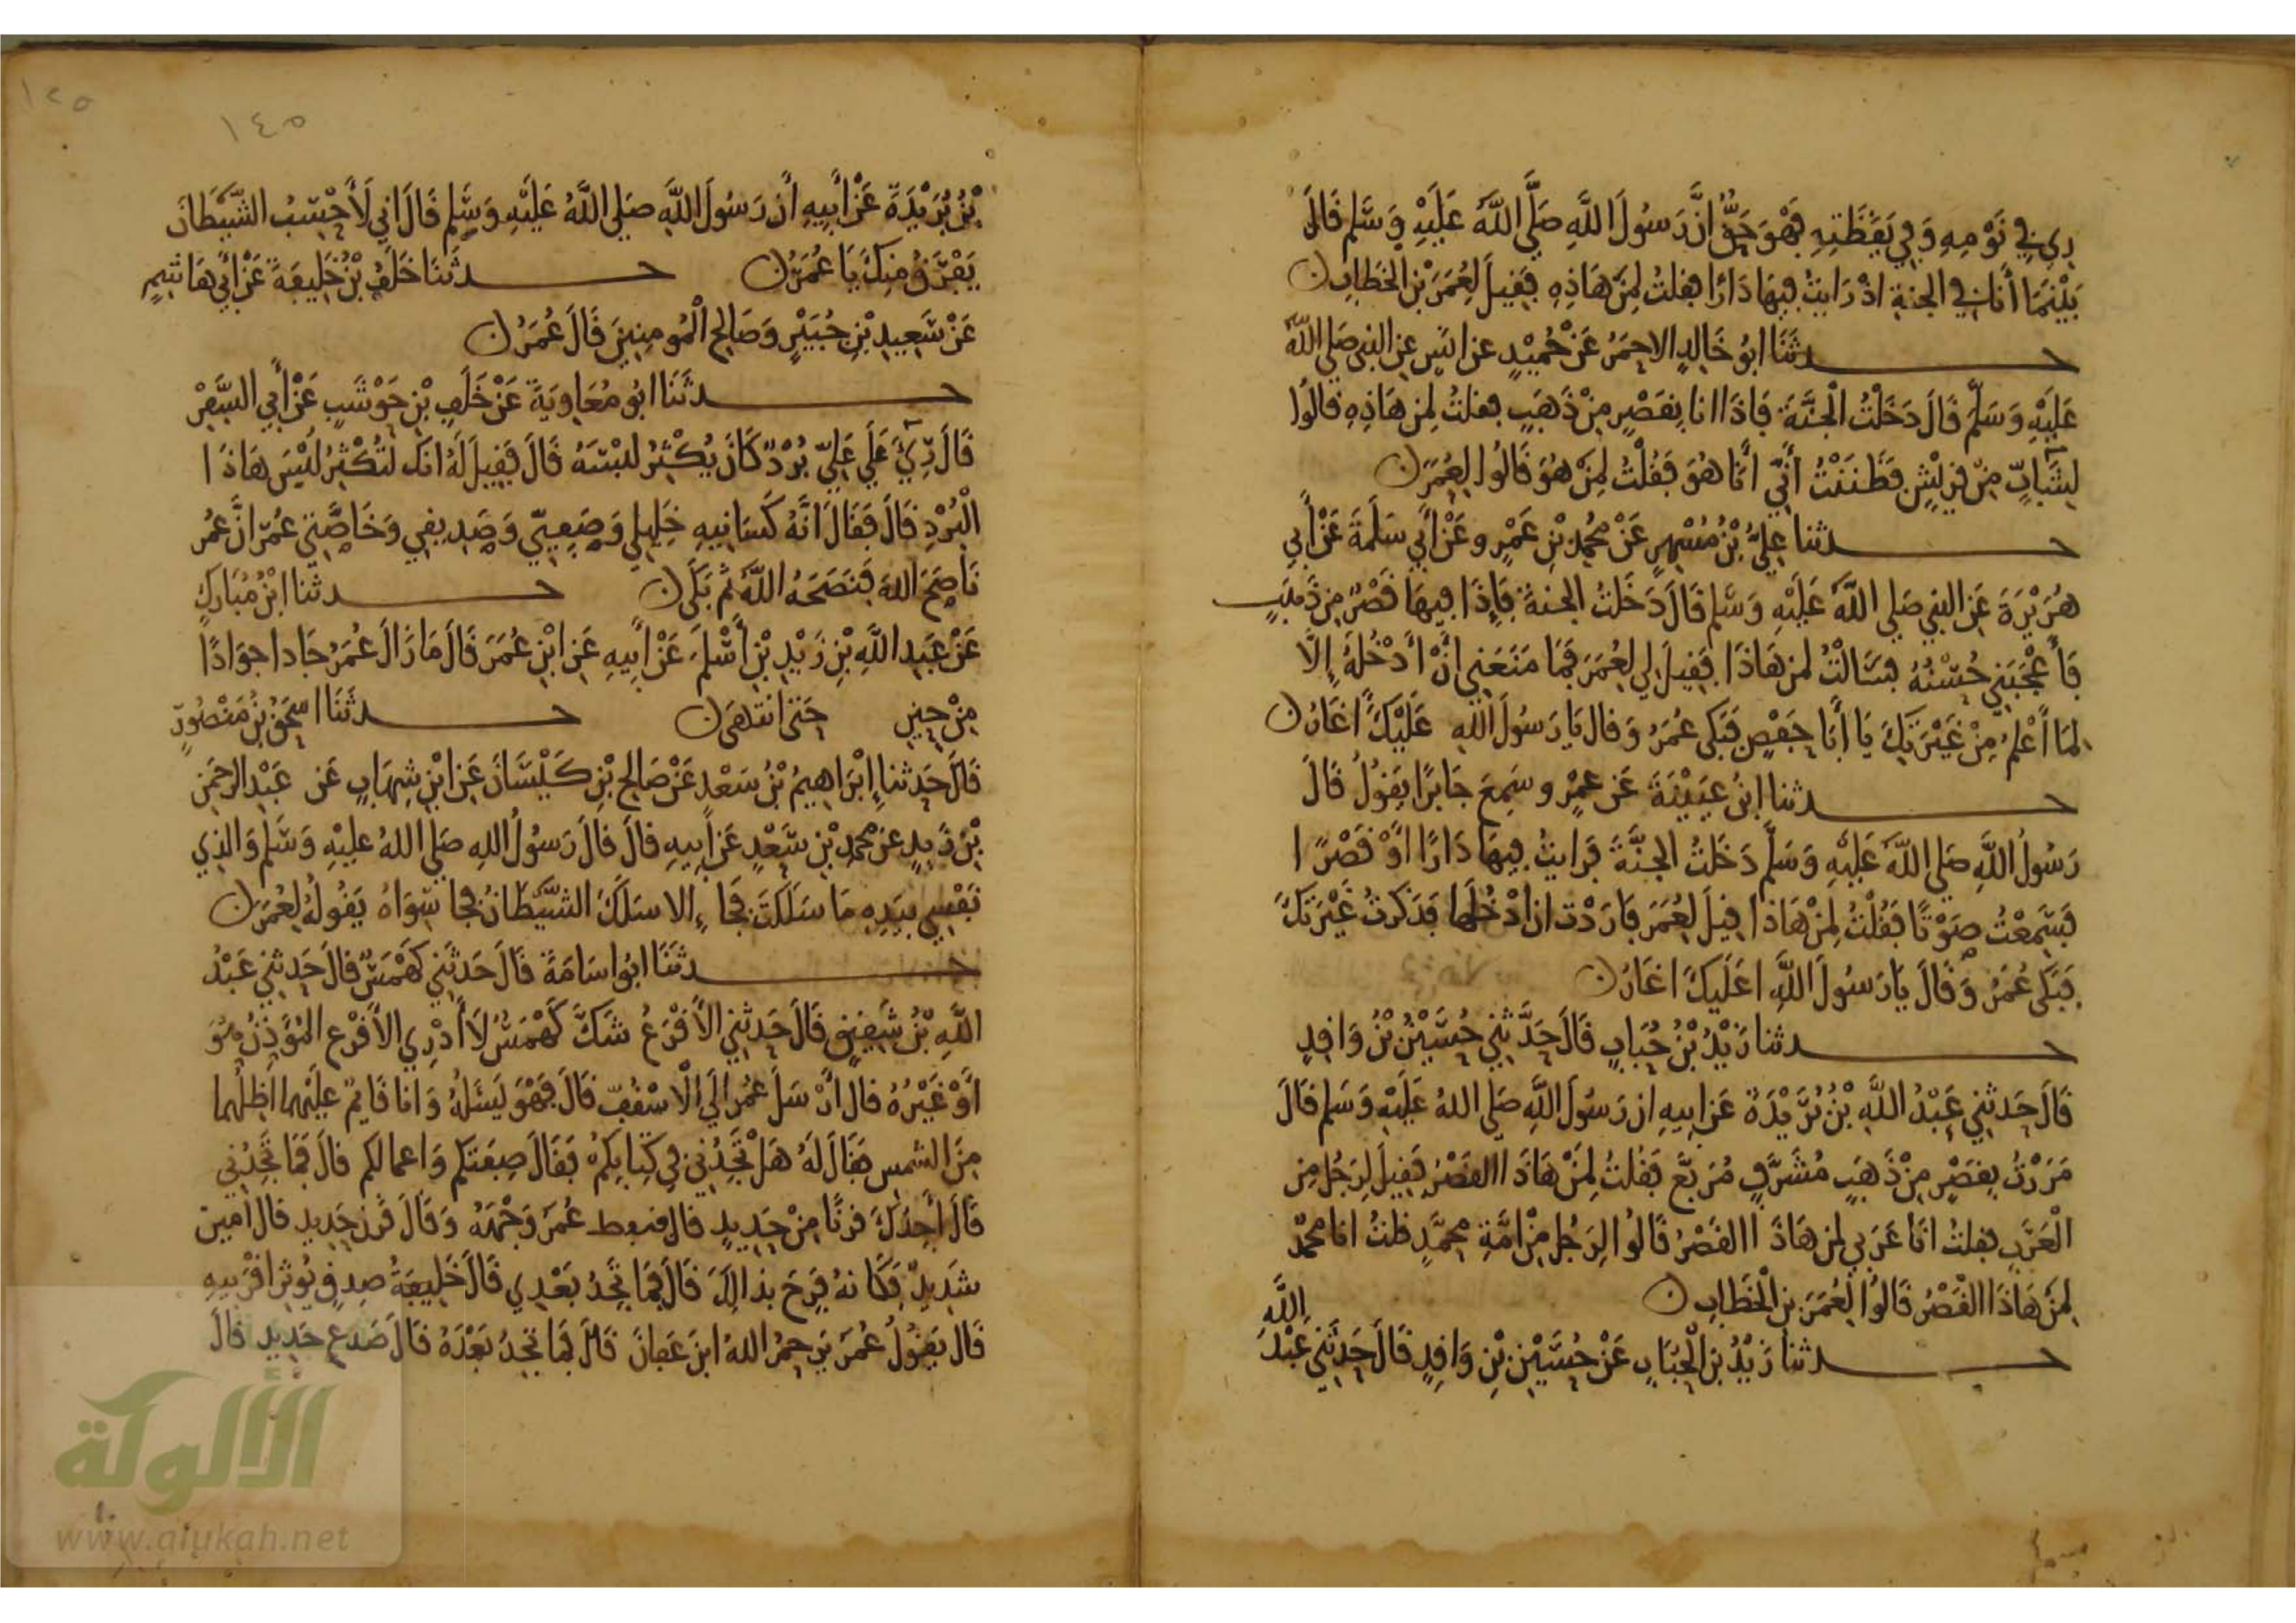 رى في نَوْمِهِ وَفِي يَقَظَتِهِ فَهْوَ حَقٌّ اِنَّ رَسُولَ اللَّهِ صَلَّى اللَّهُ عَلَيْهِ وَسَلَّم قَالَ
بَيْنَمَا أَنَا فِي الجنةِ اذْ رَايتُ فِيهَا دَارًا فقلتُ لِمَنْ هَاذِهِ فَقِيلَ لِعُمَرَ بْنِ الْخَطَّابِ
حدثَنَا ابُو خَالِدٍ الاحمَرُ عَنْ حُمَيْدٍ عن انَسٍ عنِ النبي صَلى اللَّهُ
عَلَيْهِ وَسَلَّمَ قَالَ دَخَلْتُ الْجَنَّةَ فَاِذَا انا بِقَصْرٍ مِنْ ذَهَبٍ فقلتُ لِمَنْ هَاذِهِ قالُوا
لِشَابٍّ مِنْ قريْشٍ فَظَنَنْتُ أَنِّي أَنَا هُوَ فَقُلْتُ لِمَنْ هُوَ قَالُوا لِعُمَرَ
حدثنا عَلِيُّ بْنُ مُسْهِرٍ عَنْ مُحَمدِ بْنِ عَمْرٍو عَنْ أَبِي سَلَمَةَ عَنْ أَبِي
هُرَيْرَةَ عَنِ النبي صَلى اللَّهُ عَلَيْهِ وَسَلم قَالَ دَخَلتُ الجنةَ فَإِذَا فِيهَا قَصْرٌ مِن ذَهَبٍ
فَأَعْجَبَنِي حُسْنُهُ فسَأَلْتُ لمن هَاذَا فَقِيلَ لِي لِعُمَرَ فَمَا مَنَعَنِي انْ أَدْخُلَهُ إِلَّا
لمَا أَعْلَمُ مِنْ غَيْرَتِكَ يَا أَبَا حَفْصٍ فَبَكى عُمَرُ وَقالَ يَا رَسُولَ اللهِ عَلَيْكَ أَغَارُ
حدثنا ابنُ عُيَيْنَةَ عَن عمْرٍو سَمِعَ جَابِرًا يَقولُ قَالَ
رَسُولُ اللَّهِ صَلى اللَّهُ عَلَيْهِ وَسَلَّم دَخَلتُ الجنَّةَ فَرَايتُ فِيهَا دَارًا اوْ قَصْرًا
فَسَمِعْتُ صَوْتًا فَقُلْتُ لِمَنْ هَاذَا قِيلَ لِعُمَرَ فَارَدْتُ ان ادْخُلَها فَذَكَرتُ غَيْرَتَكَ
فَبَكَى عُمَرُ وَقَالَ يَا رَسُولَ اللَّهِ اعَلَيكَ اغَارُ
حدثنا زَيْدُ بْنُ حُبَابٍ قَالَ حَدَّثَنِي حُسَيْنُ بْنُ وَاقِدٍ
قَالَ حَدثَنِي عَبْدُ اللَّهِ بْنُ بُرَيْدَةَ عَن ابِيهِ ان رَسُولَ اللَّهِ صَلى اللهُ عَلَيْهِ وَسَلم قَالَ
مَرَرْتُ بِقَصْرٍ مِنْ ذَهَبٍ مُشَرَّفٍ مُرَبَّعٍ فَقُلتُ لِمَنْ هَاذَا القَصْرُ فَقِيلَ لِرَجُلٍ مِن
الْعَرَبِ فقلتُ انَا عَرَبِي لمن هَاذَا القَصْرُ قَالُوا لِرَجُلٍ مِنْ امَّةِ مُحَمَّدٍ قلتُ انا محمدٌ
لِمَنْ هَاذَا القَصْرُ قَالُوا لِعُمَرَ بنِ الْخَطَّابِ
حدثنا زَيْدُ بن الْحُبَابِ عَنْ حُسَيْنِ بْنِ وَاقِدٍ قَالَ حَدثَنِي عَبْدُ اللَّهِ
١٤٥
١٢٥
بْنُ بُرَيْدَةَ عَنْ أَبِيهِ أَن رَسُولَ اللَّهِ صَلى اللَّهُ عَلَيْهِ وَسَلم قَالَ اني لَأَحْسَبُ الشَّيْطَانَ
يَفْرَقُ مِنكَ يَا عُمَرُ حدثنا خَلَفُ بْنُ خَلِيفَةَ عَنْ أَبِي هَاشِمٍ
عَنْ سَعِيدِ بْنِ جُبَيْرٍ وَصَالِح الْمُومِنِينَ قَالَ عُمَرُ
حدثَنَا ابُو مُعَاوِيَةَ عَنْ خَلَفِ بْنِ حَوْشَبٍ عَنْ أَبِي السَّفَرِ
قَالَ رِيَ عَلَى عَلِيٍّ بُرْدٌ كَانَ يُكْثِرُ لُبْسَهُ قَالَ فَقِيلَ لَهُ انكَ لَتُكْثِرُ لُبْسَ هَاذَا
الْبُرْدِ قَالَ فَقَالَ انَّهُ كَسَانِيهِ خَلِيلِي وَصَفِيِّي وَصَدِيقِي وَخَاصَّتِي عُمَرُ انَّ عُمَر
نَاصَحَ اللهَ فَنَصَحَهُ اللَّهُ ثُمَّ بَكَى حدثنا ابْنُ مُبَارَكٍ
عَنْ عَبْدِ اللَّهِ بْنِ زَيْدِ بْنِ أَسْلَمَ عَنْ أَبِيهِ عَنِ ابْنِ عُمَرَ قَالَ مَا زَالَ عُمَرُ جَادا جوَادًا
مِنْ حِينِ حَتى انتَهَى حدثَنَا اسحَقُ بْنُ مَنْصُورٍ
قَالَ حَدثنا إِبْرَاهِيمُ بْنُ سَعْدٍ عَنْ صَالِحِ بْنِ كَيْسَانَ عَنِ ابْنِ شِهَابٍ عَن عَبْدِ الرحمَنِ
بْنِ زَيدٍ عَن محمدِ بْنِ سَعْدٍ عَن أَبِيهِ قالَ قالَ رَسُولُ اللهِ صَلى اللهُ عليْهِ وَسَلم وَالذِي
نَفْسِي بِيَدِهِ مَا سَلَكتَ فَجًّا إِلا سَلَكَ الشَّيْطَانُ فَجا سِوَاهُ يَقُولُهُ لِعُمَرَ
حدثَنَا ابُو اسَامَةَ قَالَ حَدثَنِي كَهْمَسٌ قالَ حَدثنِي عَبْدُ
اللَّهِ بْنُ شَقِيقٍ قَالَ حَدثَنِي الاقْرَعُ شَكَّ كَهْمَسٌ لَا أَدْرِي الاقْرَع المؤَذِّنُ هُوَ
اوْ غَيْرُهُ قال أرْسَلَ عُمَرُ الَى الْأسْقُفِّ قَالَ فَهْوَ يَسْئَلُهُ وَانا قَائِمٌ علَيْهِما اظلُهما
مِنَ الشمسِ فقَالَ لَهُ هَلْ تَجِدُنِي في كِتَابِكُمْ فَقَالَ صِفَتكم وَاعمالكم قالَ فَمَا تَجِدُنِي
قَالَ أَجِدُكَ قرنًا مِنْ حَدِيدٍ قال فنقط عُمَرُ وَجْهَهُ وَقَالَ قَرن حَدِيد قال امين
شدِيدٌ فَكَانهُ فَرِحَ بذالِكَ قَالَ فَمَا تَجدُ بَعْدِي قَالَ خَلِيفَةُ صِدْقٍ يُوثِرُ اقْرَبِيهِ
قال يَقُولُ عُمَرُ يَرحمُ اللهُ ابنَ عَفانَ قَالَ فَمَا تَجدُ بَعْدَهُ قَالَ صَدَعُ حَدِيد قالَ
الألوكة
www.alukah.net